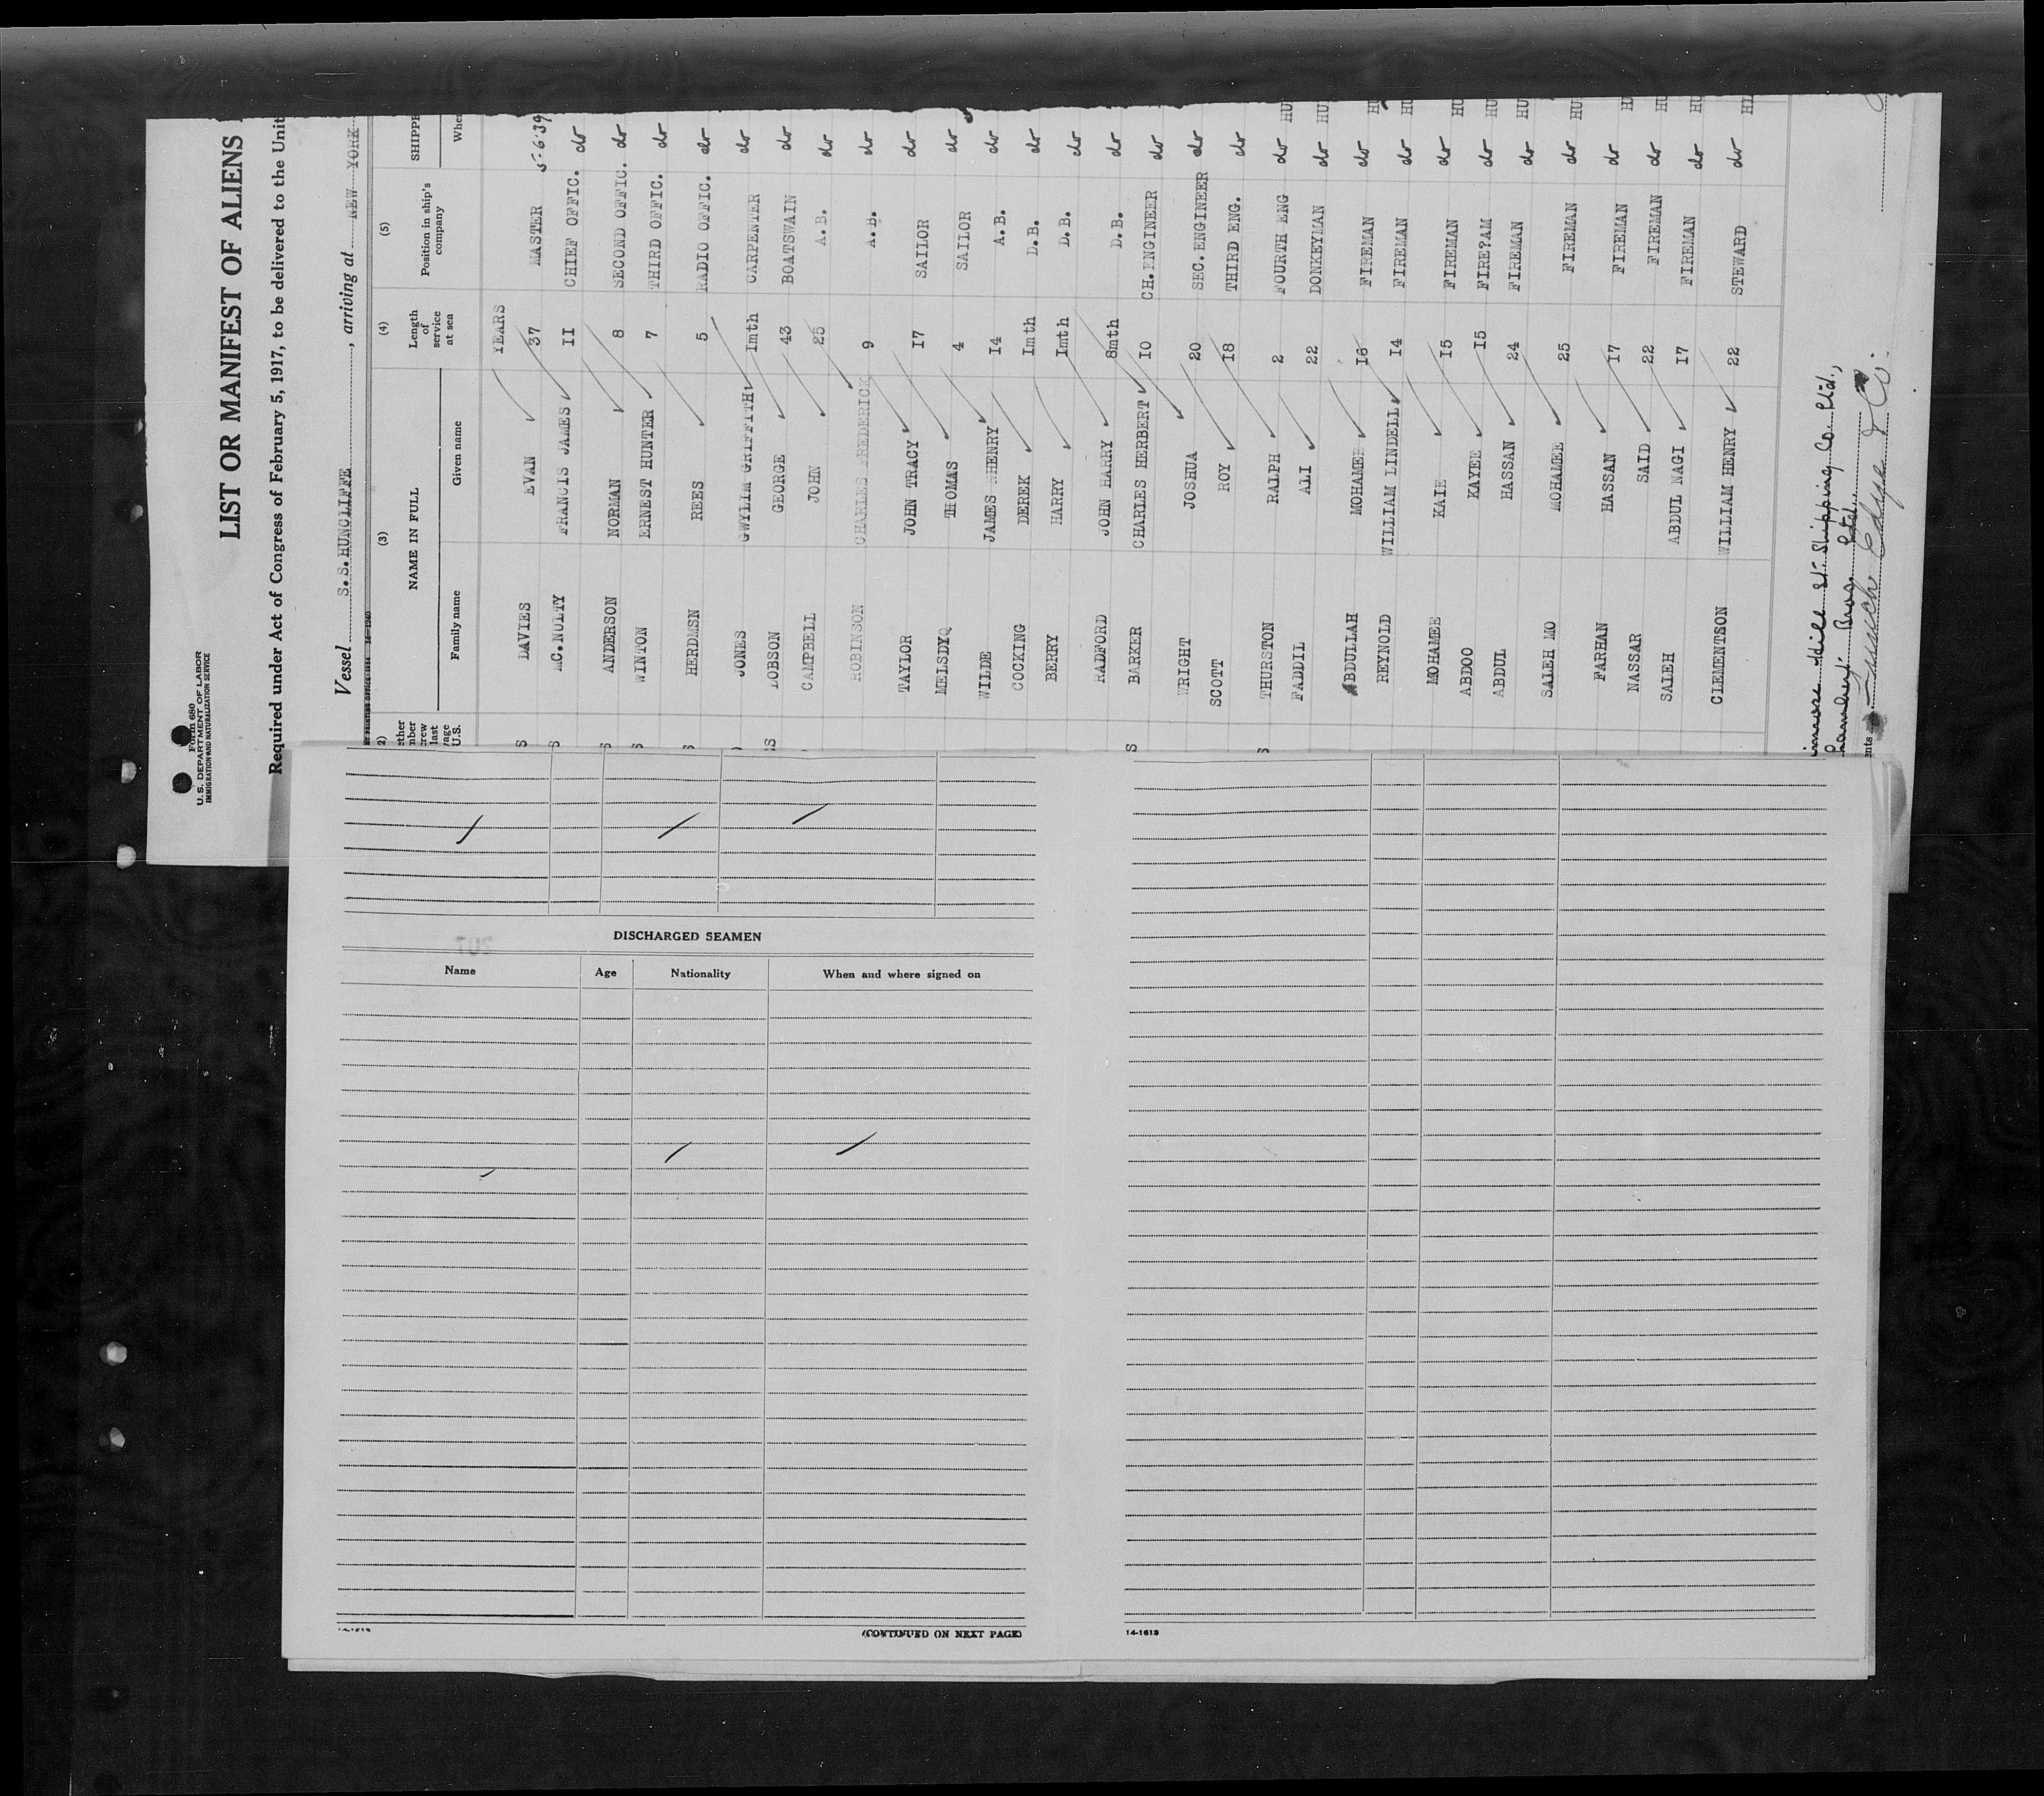 Form 680
U. S. DEPARTMENT OF LABOR
IMMIGRATION AND NATURALIZATION SERVICE
LIST OR MANIFEST OF ALIENS
Required under Act of Congress of February 5, 1917, to be delivered to the Unit
Vessel S.S.HUNCLIFFE, arriving at NEW YORK
(3) (4) (5)
NAME IN FULL Length of service at sea Position in ship's company SHIPPE
Family name Given name Whe
YEARS
DAVIES EVAN 37 MASTER 5-6-39
MC.NULTY FRANCIS JAMES 11 CHIEF OFFIC. do
ANDERSON NORMAN 8 SECOND OFFIC. do
WINTON ERNEST HUNTER 7 THIRD OFFIC. do
HERDMSN REES 5 RADIO OFFIC. do
JONES GWYLIM GRIFFITH 1mth CARPENTER do
DOBSON GEORGE 43 BOATSWAIN do
CAMPBELL JOHN 25 A.B. do
ROBINSON CHARLES FREDERICK 9 A.B. do
TAYLOR JOHN TRACY 17 SAILOR do
THOMAS 4 SAILOR do
WILDE JAMES HENRY 14 A.B. do
COCKING DEREK 1mth D.B. do
BERRY HARRY 1mth D.B. do
RADFORD JOHN HARRY 8mth D.B. do
BARKER CHARLES HERBERT 10 CH.ENGINEER do
WRIGHT JOSHUA 20 SEC.ENGINEER do
SCOTT ROY 18 THIRD ENG. do
THURSTON RALPH 2 FOURTH ENG do HU
FADDIL ALI 22 DONKEYMAN do HU
ABDULLAH MOHAMEE 16 FIREMAN do HU
REYNOLD WILLIAM LINDELL 14 FIREMAN do HU
MOHAMEE KAIE 15 FIREMAN do HU
ABDOO KAYEE 15 FIRE?AM do HU
ABDUL HASSAN 24 FIREMAN do HU
SALEH MO MOHAMEE 25 FIREMAN do HU
FARHAN HASSAN 17 FIREMAN do HU
NASSAR SAID 22 FIREMAN do HU
SALEH ABDUL NAGI 17 FIREMAN do HU
CLEMENTSON WILLIAM HENRY 22 STEWARD do
St. Shipping Co. Ltd.,
Bros. Ltd.
Funch Edye & Co.
DISCHARGED SEAMEN
Name Age Nationality When and where signed on
(CONTINUED ON NEXT PAGE)
14-1613